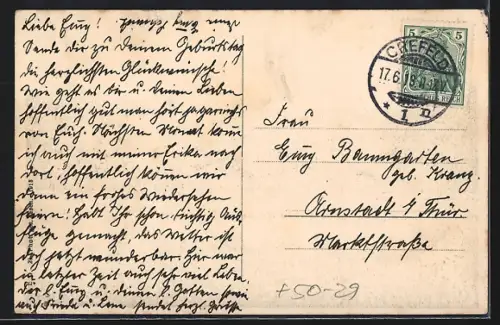 Liebe Emy!
Sende dir zu Deinem Geburtstag
die herzlichsten Glückwünsche!
Wie geht es dir u. deinen Lieben
hoffentlich gut man hört gar nichts
von Euch. Nächsten Monat komme
ich auch mit meiner Erika nach
dort, hoffentlich können wir
dann ein frohes Wiedersehen
feiern! Habt Ihr schon tüchtig Aus-
flüge gemacht, das Wetter ist
doch jetzt wunderbar. Hier war
in letzter Zeit auch sehr viel Leben.
Dir l. Emy u. deinen l. Gatten
auch Frieda u. Lene sendet herzl. Grüsse
5 5
CREFELD
17.6.
* 1 n
Frau
Emy Baumgarten
geb. Kranz.
Arnstadt i/ Thür
Marktstraße
+50-29